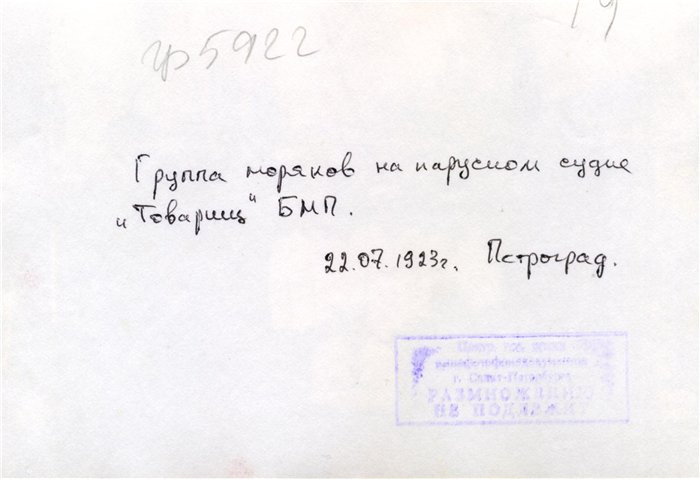 гр 5922
19
Группа моряков на парусном судне
„Товарищ" БМП.
22.07.1923г. Петроград.
г. Санкт-Петербурга
РАЗМНОЖЕНИЮ
НЕ ПОДЛЕЖИТ